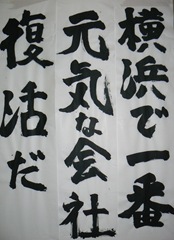 横浜で一番
元気な会社
復活だ